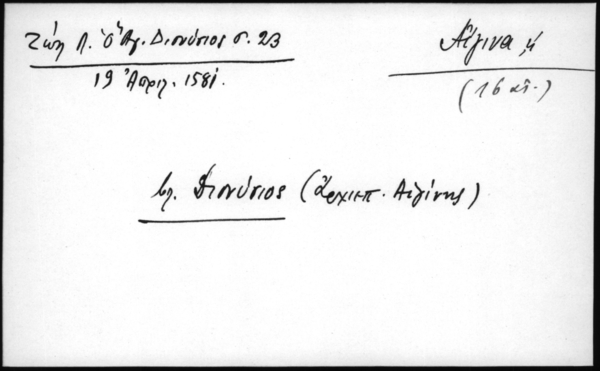 Ζώη Λ. Ὁ Ἅγ. Διονύσιος σ. 23
19 Ἀπριλ. 1581.
Αἴγινα, ἡ
(16 αἰ.)
βλ. Διονύσιος (ἀρχιεπ. Αἰγίνης)